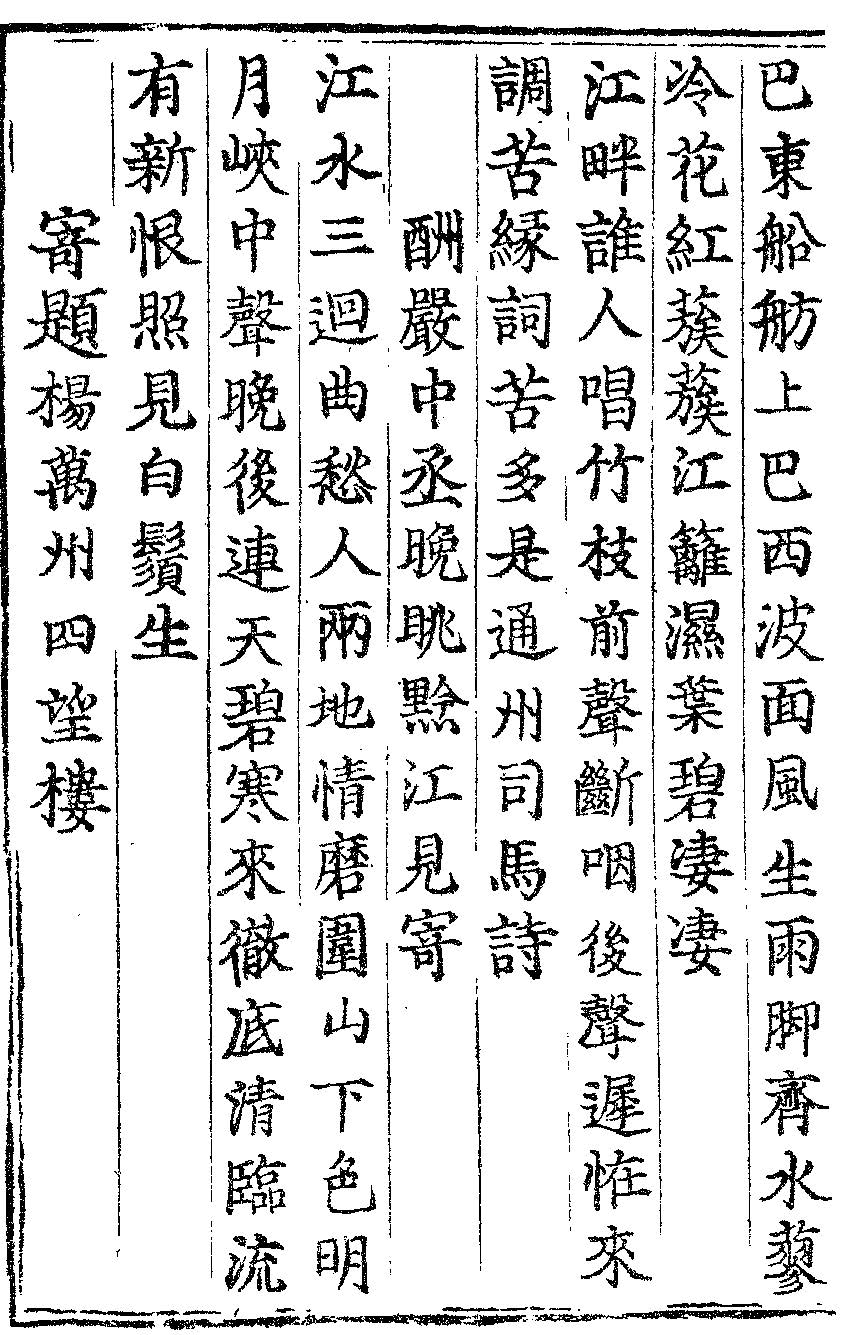 巴東船舫上巴西波面風生雨脚齊水蓼
冷花紅蔟蔟江籬濕葉碧凄凄
江畔誰人唱竹枝前聲斷咽後聲遲恠來
調苦緣詞苦多是通州司馬詩
酬嚴中丞晚眺黔江見寄
江水三迴曲愁人兩地情磨圍山下色明
月峽中聲晚後連天碧寒來徹底清臨流
有新恨照見白鬚生
寄題楊萬州四望樓